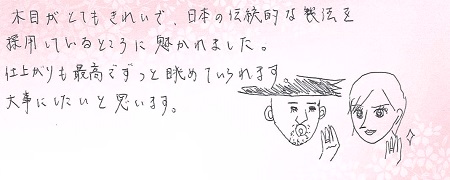 木目がとてもきれいで、日本の伝統的な製法を
採用しているところに魅かれました。
仕上がりも最高でずっと眺めていられます
大事にしたいと思います。